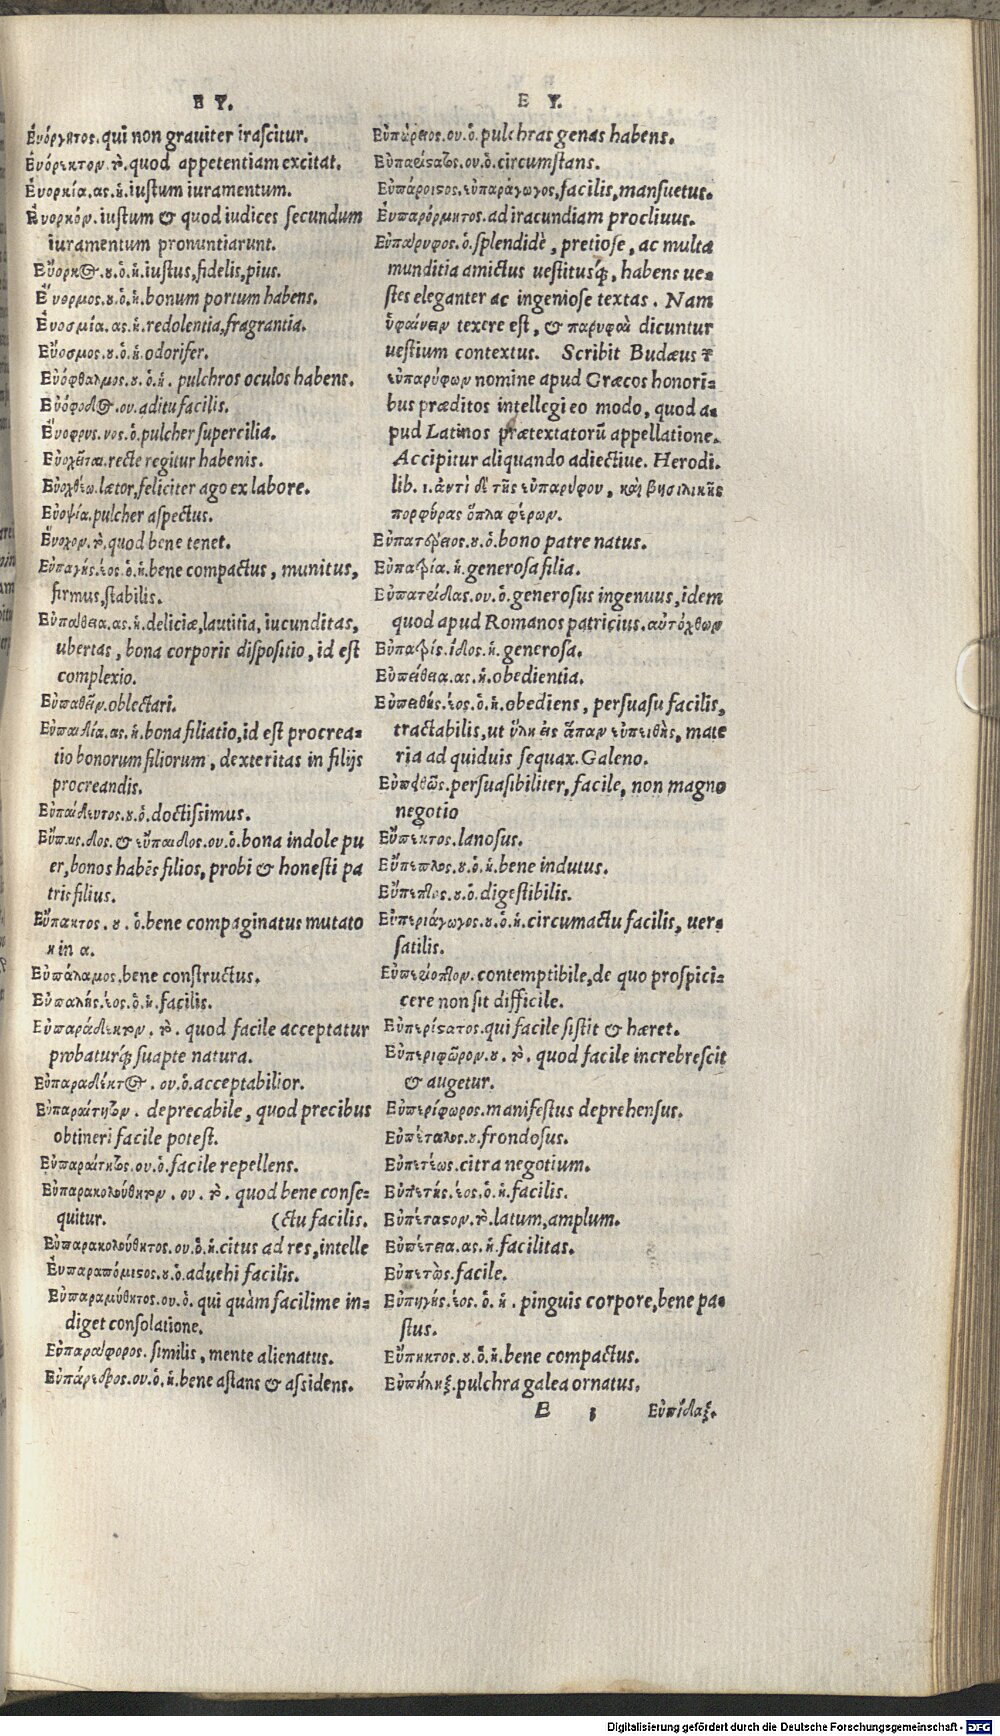 Ε Υ.
Εὐόργητος. qui non grauiter irascitur.
Εὐόρεκτον. τὸ. quod appetentiam excitat.
Εὐορκία. ας. ἡ. iustum iuramentum.
Εὐορκόν. iustum & quod iudices secundum
iuramentum pronuntiarunt.
Εὔορκος. ου. ὁ. ἡ. iustus, fidelis, pius.
Εὔορμος. ου. ὁ. ἡ. bonum portum habens.
Εὐοσμία. ας. ἡ. redolentia, fragrantia.
Εὔοσμος. ου. ὁ. ἡ. odorifer.
Εὐόφθαλμος. ου. ὁ. ἡ. pulchros oculos habens.
Εὐόφοδος. ου. aditu facilis.
Εὔοφρυς. υος. ὁ. pulcher supercilia.
Εὐοχεῖται. recte regitur habenis.
Εὐοχθέω. lætor, feliciter ago ex labore.
Εὐοψία. pulcher aspectus.
Εὔοχον. τὸ. quod bene tenet.
Εὐπαγής. έος. ὁ. ἡ. bene compactus, munitus,
firmus, stabilis.
Εὐπάθεια. ας. ἡ. deliciæ, lautitia, iucunditas,
ubertas, bona corporis dispositio, id est
complexio.
Εὐπαθεῖν. oblectari.
Εὐπαιδία. ας. ἡ. bona filiatio, id est procrea-
tio bonorum filiorum, dexteritas in filijs
procreandis.
Εὐπαίδευτος. ου. ὁ. doctissimus.
Εὔπαις. δος. & εὔπαιδος. ου. ὁ. bona indole pu
er, bonos habēs filios, probi & honesti pa
tris filius.
Εὔπακτος. ου. ὁ. bene compaginatus mutato
κ in α.
Εὐπάλαμος. bene constructus.
Εὐπαλής. έος. ὁ. ἡ. facilis.
Εὐπαράδεκτον. τὸ. quod facile acceptatur
probaturq́; suapte natura.
Εὐπαράδεκτος. ου. ὁ. acceptabilior.
Εὐπαραίτητον. deprecabile, quod precibus
obtineri facile potest.
Εὐπαραίτητος. ου. ὁ. facile repellens.
Εὐπαρακολούθητον. ου. τὸ. quod bene conse-
quitur. (ctu facilis.
Εὐπαρακολούθητος. ου. ὁ. ἡ. citus ad res, intelle
Εὐπαραπόμιστος. ου. ὁ. aduehi facilis.
Εὐπαραμύθητος. ου. ὁ. qui quàm facilime in-
diget consolatione.
Εὐπαράφορος. similis, mente alienatus.
Εὐπάρεδρος. ου. ὁ. ἡ. bene astans & assidens.
Ε Υ.
Εὐπάρειος. ου. ὁ. pulchras genas habens.
Εὐπαρίστατος. ου. ὁ. circumstans.
Εὐπάροιστος. εὐπαράγωγος, facilis, mansuetus.
Εὐπαρόρμητος. ad iracundiam procliuus.
Εὐπάρυφος. ὁ. splendidè, pretiose, ac multa
munditia amictus uestitusq́;, habens ue-
stes eleganter ac ingeniose textas. Nam
ὑφαίνειν texere est, & παρυφαὶ dicuntur
uestium contextus. Scribit Budæus τ
εὐπαρύφων nomine apud Græcos honori-
bus præditos intellegi eo modo, quod a-
pud Latinos prætextatorū appellatione.
Accipitur aliquando adiectiue. Herodi.
lib. 1. ἀντὶ δὲ τῆς εὐπαρύφου, καὶ βασιλικῆς
πορφύρας ὅπλα φέρων.
Εὐπατέρειος. ου. ὁ. bono patre natus.
Εὐπατρία. ἡ. generosa filia.
Εὐπατρίδας. ου. ὁ. generosus ingenuus, idem
quod apud Romanos patricius. αὐτόχθων
Εὐπατρίς. ίδος. ἡ. generosa.
Εὐπείθεια. ας. ἡ. obedientia.
Εὐπειθής. έος. ὁ. ἡ. obediens, persuasu facilis,
tractabilis, ut ὕλη εἰς ἅπαν εὐπειθὴς, mate
ria ad quiduis sequax. Galeno.
Εὐπειθῶς. persuasibiliter, facile, non magno
negotio
Εὔπεκτος. lanosus.
Εὔπεπλος. ου. ὁ. ἡ. bene indutus.
Εὔπεπτος. ου. ὁ. digestibilis.
Εὐπεριάγωγος. ου. ὁ. ἡ. circumactu facilis, uer-
satilis.
Εὐπερίοπτον. contemptibile, de quo prospici-
cere non sit difficile.
Εὐπερίστατος. qui facile sistit & hæret.
Εὐπεριφῶρον. ου. τὸ. quod facile increbrescit
& augetur.
Εὐπερίφωρος. manifestus deprehensus.
Εὐπέταλος. ου. frondosus.
Εὐπετέως. citra negotium.
Εὐπετής. έος. ὁ. ἡ. facilis.
Εὐπέταστον. τὸ. latum, amplum.
Εὐπέτεια. ας. ἡ. facilitas.
Εὐπετῶς. facile.
Εὐπηγής. έος. ὁ. ἡ. pinguis corpore, bene pa-
stus.
Εὔπηκτος. ου. ὁ. ἡ. bene compactus.
Εὐπήληξ. pulchra galea ornatus.
E 3 Εὐπίδαξ.
Digitalisierung gefördert durch die Deutsche Forschungsgemeinschaft - DFG